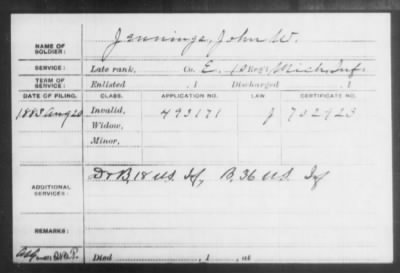 NAME OF SOLDIER: Jennings, John W.
SERVICE: Late rank, Co. E, 1 Reg't Mich. Inf.
TERM OF SERVICE: Enlisted , 1 Discharged , 1
DATE OF FILING. CLASS. APPLICATION NO. LAW CERTIFICATE NO.
1883 Aug 20 Invalid, 493171 J 752923
Widow,
Minor,
ADDITIONAL SERVICES: D & B, 18 U.S. Inf, B, 36 U.S. Inf
REMARKS:
Died , 1 , at